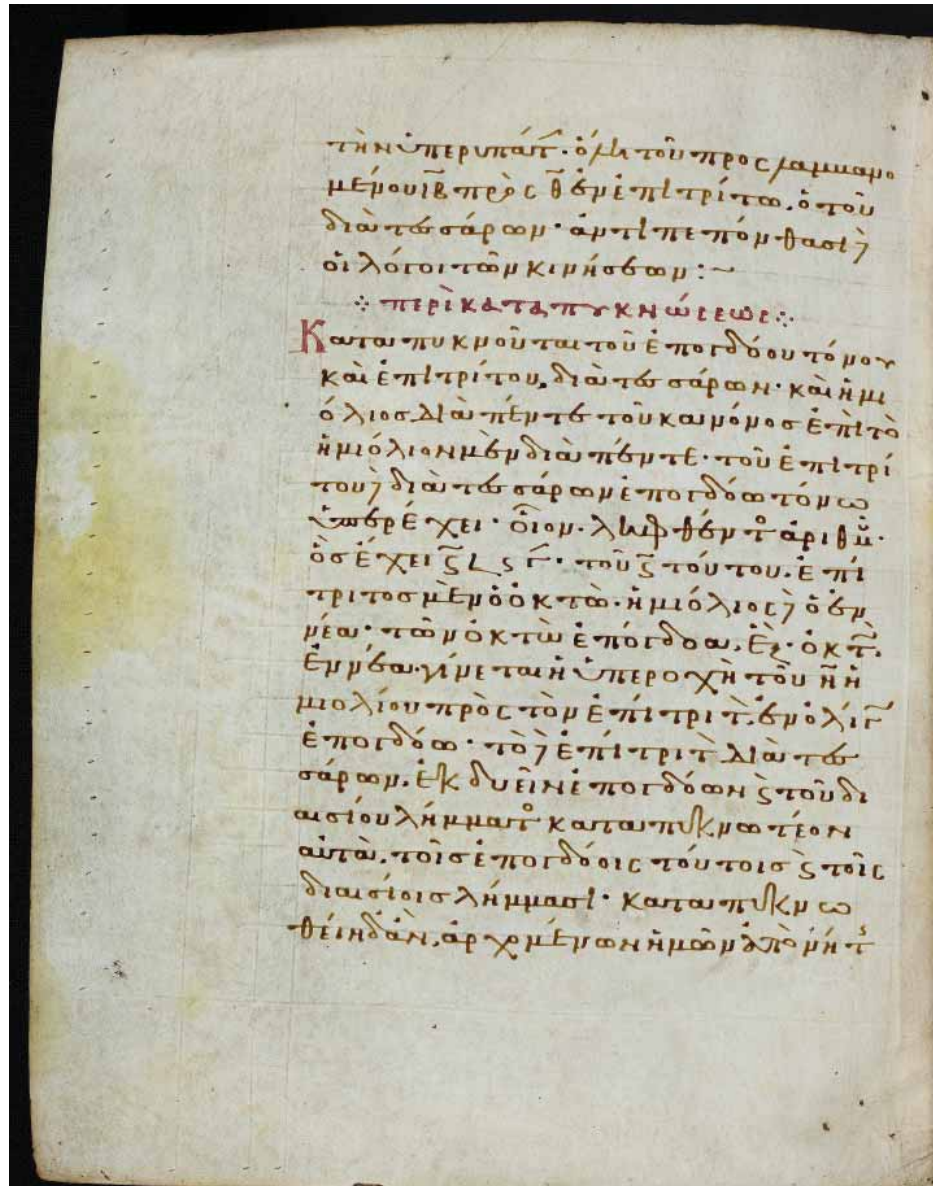 τὴν ὑπερυπάτ· ὁ μ τοῦ προσλαμβανο
μένου ιβ πρὸς θ ἐν ἐπιτρίτω. ὁ τοῦ
διὰ τεσσάρων· ἀντιπεπόνθασι
οἱ λόγοι τῶν κινήσεων :~
⁘ περὶ καταπυκνώσεως ⁘
Καταπυκνοῦται τοῦ ἐπογδόου τόνου
καὶ ἐπιτρίτου. διὰ τεσσάρων· καὶ ἡμι
όλιος διὰ πέντε τοῦ κανόνος ἐπὶ τὸ
ἡμιόλιον μὲν διὰ πέντε· τοῦ ἐπιτρί
του διὰ τεσσάρων ἐπογδόω τόνω
ὑπερέχει· οἷον. ληφθέντ ἀριθμ·
ὃς ἔχει
τούτου. ἐπί
τριτος μὲν ὁ ὀκτὼ· ἡμιόλιος ὁ ἐν
νέα· τῶν ὀκτὼ ἐπόγδοα. ὀκτ.
ἐννέα· γίνεται ἡ ὑπεροχὴ τοῦ ἡ
μιολίου πρὸς τὸν ἐπίτριτ. ἐν ὀλ
ἐπογδόω· τὸ ἐπίτριτ διὰ τεσ
σάρων. ἐκ δυεῖν ἐπογδόων ϛ τοῦ δι
αισίου λήμματ καταπυκνωτέον
αὐτὰ. τοῖς ἐπογδόοις τούτοις ϛ τοῖς
διαισίοις λήμμασι· καταπυκνω
θείη δ ἀν. ἀρχομένων ἡμῶν ἀπὸ νήτ